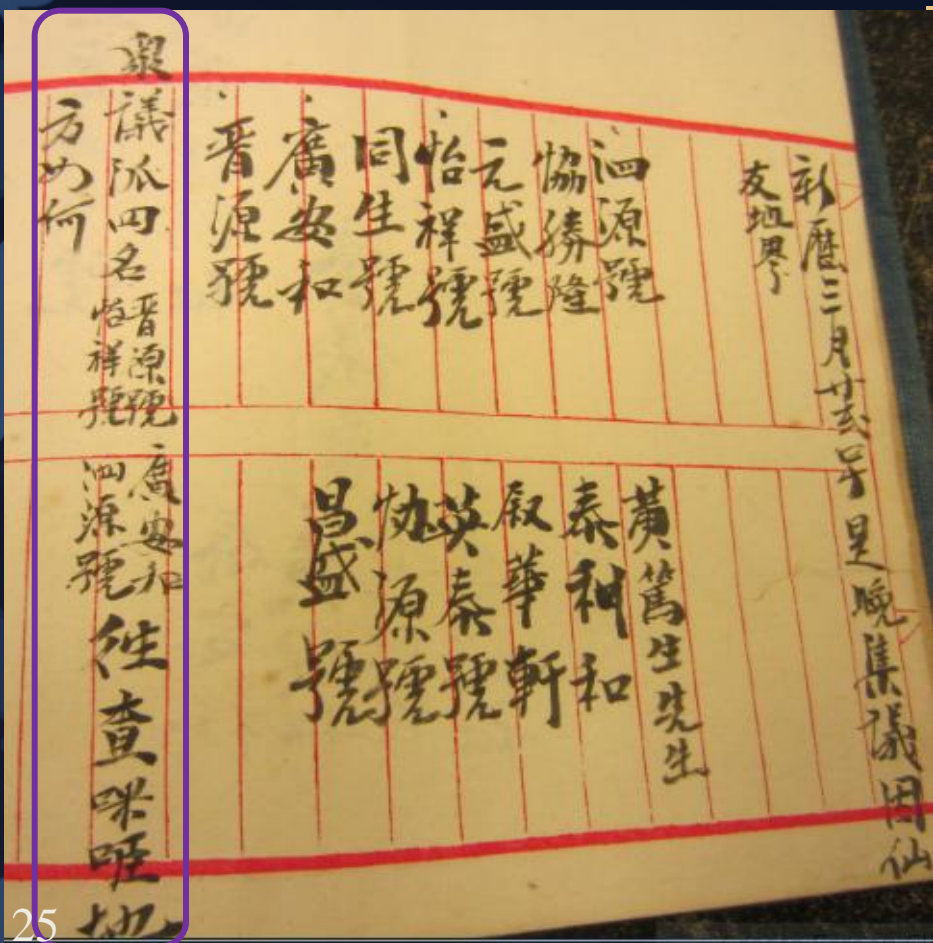 新曆三月廿弐号是晚集議因仙
友地界
泗源號
協勝隆
元盛號
怡祥號
同生號
廣安和
晋源號
黃篤生先生
泰利和
叙華軒
英泰號
協源號
昌盛號
衆議派四名 晋源號 怡祥號 廣安和 泗源號 往查咪唖地
方如何
25